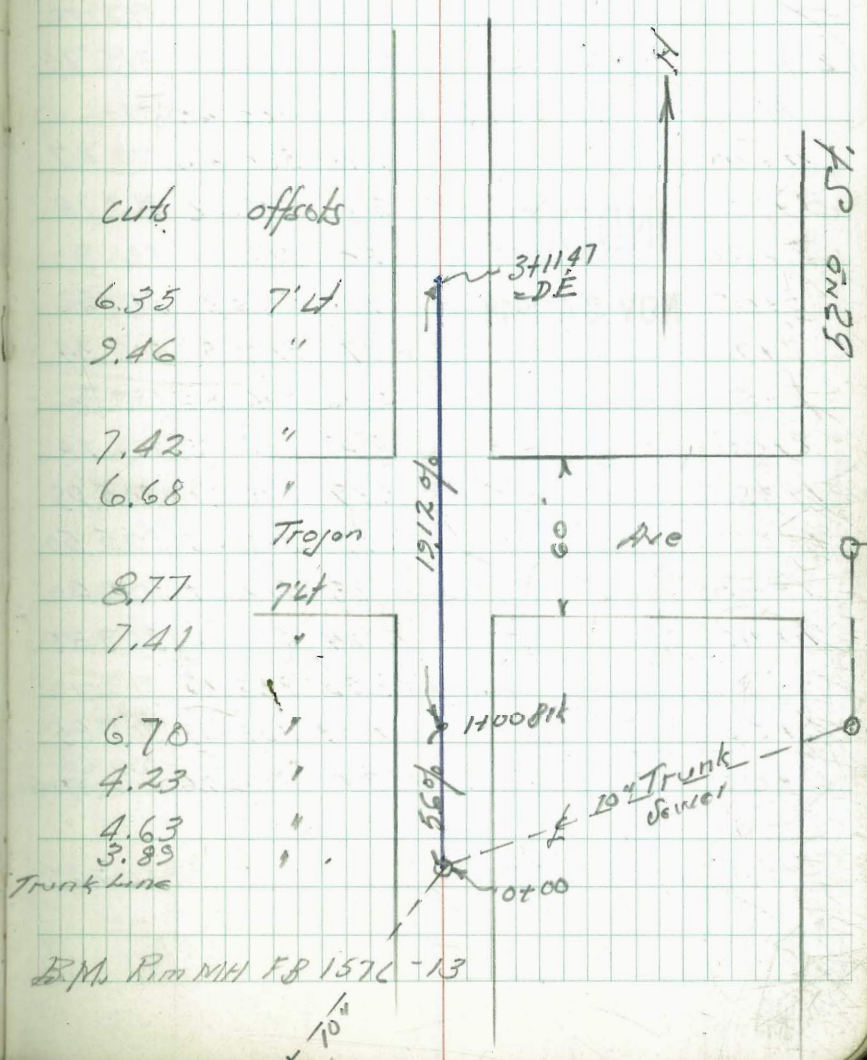 cuts offsets
6.35 7'Lt
9.46 "
7.42 "
6.68 "
Trojan Ave
8.77 7'Lt
7.41 "
6.70 "
4.23 "
4.63 "
3.89 "
Trunk Line
B.M. Rim MH FB 1576 -13
N
52ND St.
3+11.47
=D.E
19.12%
60'
1+00 Brk
.56%
10" Trunk
Sewer
0+00
10"